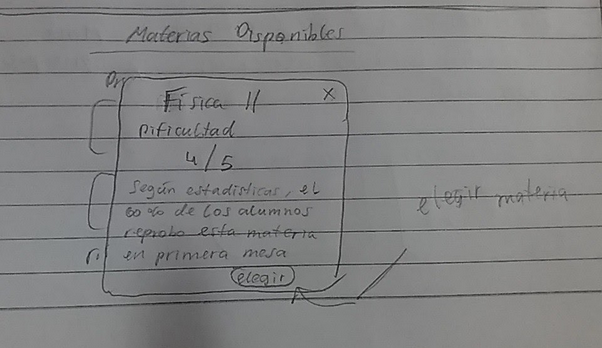 Materias Disponibles
Física II X
Dificultad
4/5
Según estadísticas, el
60% de los alumnos
reprobo esta materia
en primera mesa
elegir
elegir materia